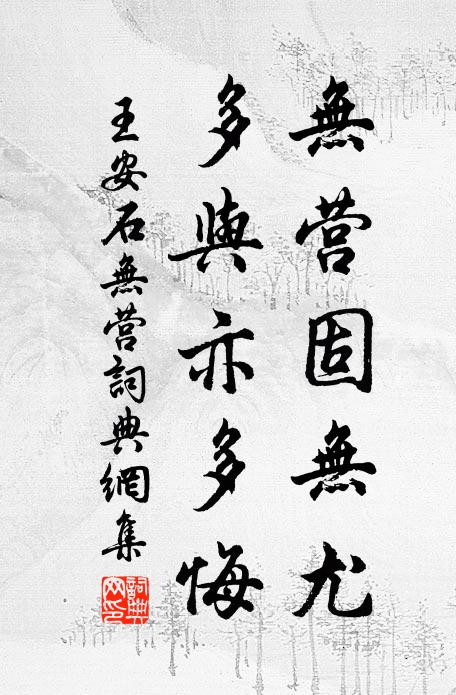 無营固無尤
多與亦多悔
王安石無营詞典網集
詞典網印